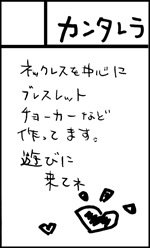 カンタレラ
ネックレスを中心に
ブレスレット
チョーカーなど
作ってます。
遊びに
来てネ